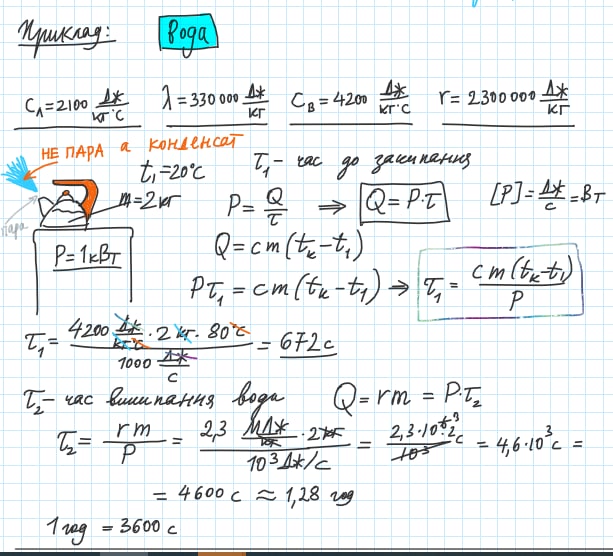 Приклад: Вода
C_Л = 2100 Дж/кг°С λ = 330 000 Дж/кг C_В = 4200 Дж/кг°С r = 2300 000 Дж/кг
НЕ ПАРА а конденсат
t₁ = 20°С τ₁ – час до закипання
пара
m = 2 кг P = Q/τ ⇒ Q = P·τ [P] = Дж/с = Вт
P = 1 кВт Q = cm(t_к – t₁)
Pτ₁ = cm(t_к – t₁) ⇒ τ₁ = cm(t_к – t₁)/P
τ₁ = 4200 Дж/кг°С · 2 кг · 80°С / 1000 Дж/с = 672 с
τ₂ – час википання вода Q = rm = P·τ₂
τ₂ = rm/P = 2,3 МДж/кг · 2 кг / 10³ Дж/с = 2,3·10⁶ ³ 2 с / 10³ = 4,6·10³ с =
= 4600 с ≈ 1,28 год
1 год = 3600 с